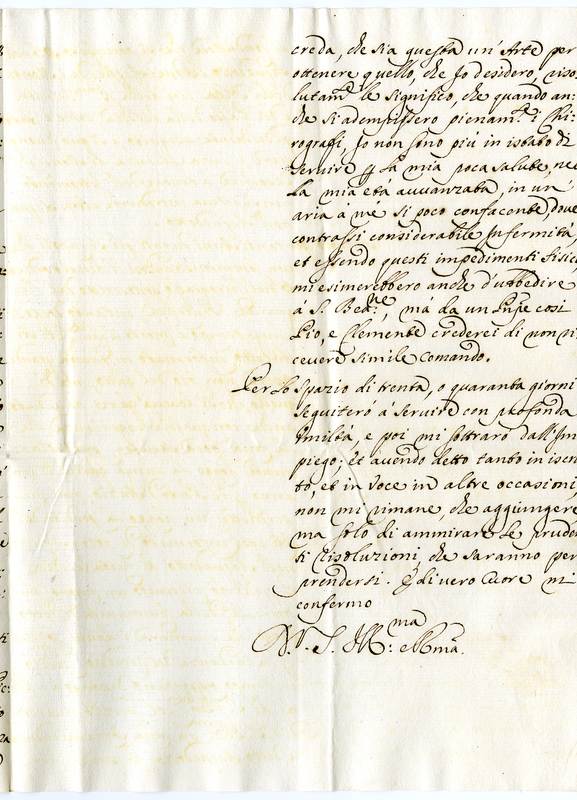 creda, che sia questa un'Arte per
ottenere quello, che Io desidero, riso,
lutam.te le significo, che quando an:
che si adempissero pienam.te i Chi:
rografi, Io non sono più in istato di
servire la mia poca salute, nè
la mia età avvanzata, in un
aria à mè si poco confacente, dove
contrassi considerabile Infermità,
et essendo questi impedimenti fisici
mi esimerebbero anche d'ubbedire
à S. Bea.ne, mà da un Pnpe cosi
Pio, e Clemente crederei di non ri
cevere simile comando.
Per lo spazio di trenta, o quaranta giorni
seguiterò à servire con profonda
Umiltà, e poi mi sottrarò dall'Im
piego; et avendo detto tanto in iscri
to, et in voce in altre occasioni,
non mi rimane, che aggiungere
ma solo di ammirare le pruden
ti risoluzioni, che saranno per
prendersi. E di vero Cuore mi
confermo
D. V. S. Ill.ma e Rma.